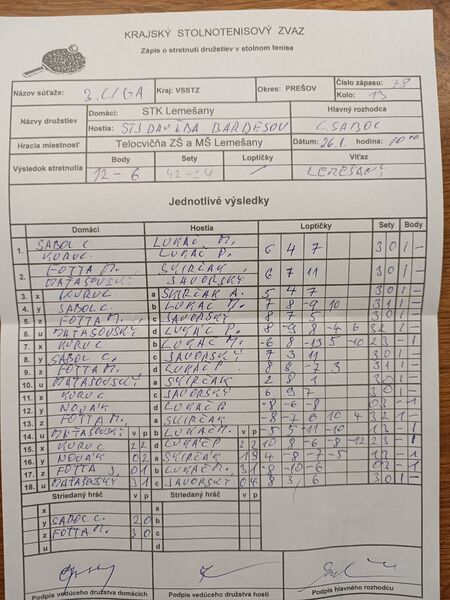 KRAJSKÝ STOLNOTENISOVÝ ZVAZ
Zápis o stretnutí družstiev v stolnom tenise
Názov súťaže: 3.C/GA Kraj: VSSTZ Okres: PREŠOV Číslo zápasu: 78
Kolo: 13
Názvy družstiev Domáci: STK Lemešany Hlavný rozhodca
Hostia: STJ DRUŽBA BARDEJOV C.SABOL
Hracia miestnosť Telocvičňa ZŠ a MŠ Lemešany Dátum: 26.1. hodina: 10
Výsledok stretnutia Body Sety Loptičky Víťaz
12 - 6 42-24 LEMEŠANY
Jednotlivé výsledky
Domáci Hostia Loptičky Sety Body
1. SABOL C. LUKÁČ M. 6 4 7 3 0 1 -
KURUC LUKÁČ P.
2. FOTTA M. SKIRČAK 6 7 11 3 0 1 -
MATAŠOVSKÝ JAVORSKÝ
3. x KURUC a SKIRČAK A. 5 4 7 3 0 1 -
4. y SABOL C. b LUKAČ M. 7 8 -9 10 3 1 1 -
5. z FOTTA M. c JAVORSKÝ 8 7 5 3 0 1 -
6. u MATAŠOVSKÝ d LUKAČ P. 8 -9 8 -4 6 3 2 1 -
7. x KURUC b LUKAČ M. -6 8 -13 5 -10 2 3 - 1
8. y SABOL C. c JAVORSKÝ 7 3 11 3 0 1 -
9. z FOTTA M. d LUKAČ P. 8 8 -7 3 3 1 1 -
10. u MATAŠOVSKÝ a SKIRČAK 2 8 1 3 0 1 -
11. x KURUC c JAVORSKÝ 6 9 7 3 0 1 -
12. y NOVAK d LUKAČ P. -8 -6 -8 0 3 - 1
13. z FOTTA M. a SKIRČAK 8 -7 6 10 4 3 2 1 -
14. u MATAŠOVSKÝ v p b LUKAČ M. v p
15. x KURUC 2 2 d LUKAČ P 2 2 10 8 -6 -8 -12 2 3 - 1
16. y NOVAK 0 2 a SKIRČAK
17. z FOTTA 0 1 b LUKAČ M. 3 1 -8 -10 -6 0 3 - 1
18. u MATAŠOVSKÝ 3 1 c JAVORSKÝ 0 4 8 3 6 3 0 1 -
Striedaný hráč v p Striedaný hráč v p
x a
y SABOL C. 2 0 b
z FOTTA M. 3 0 c
u d
Podpis vedúceho družstva domácich Podpis vedúceho družstva hostí Podpis hlavného rozhodcu